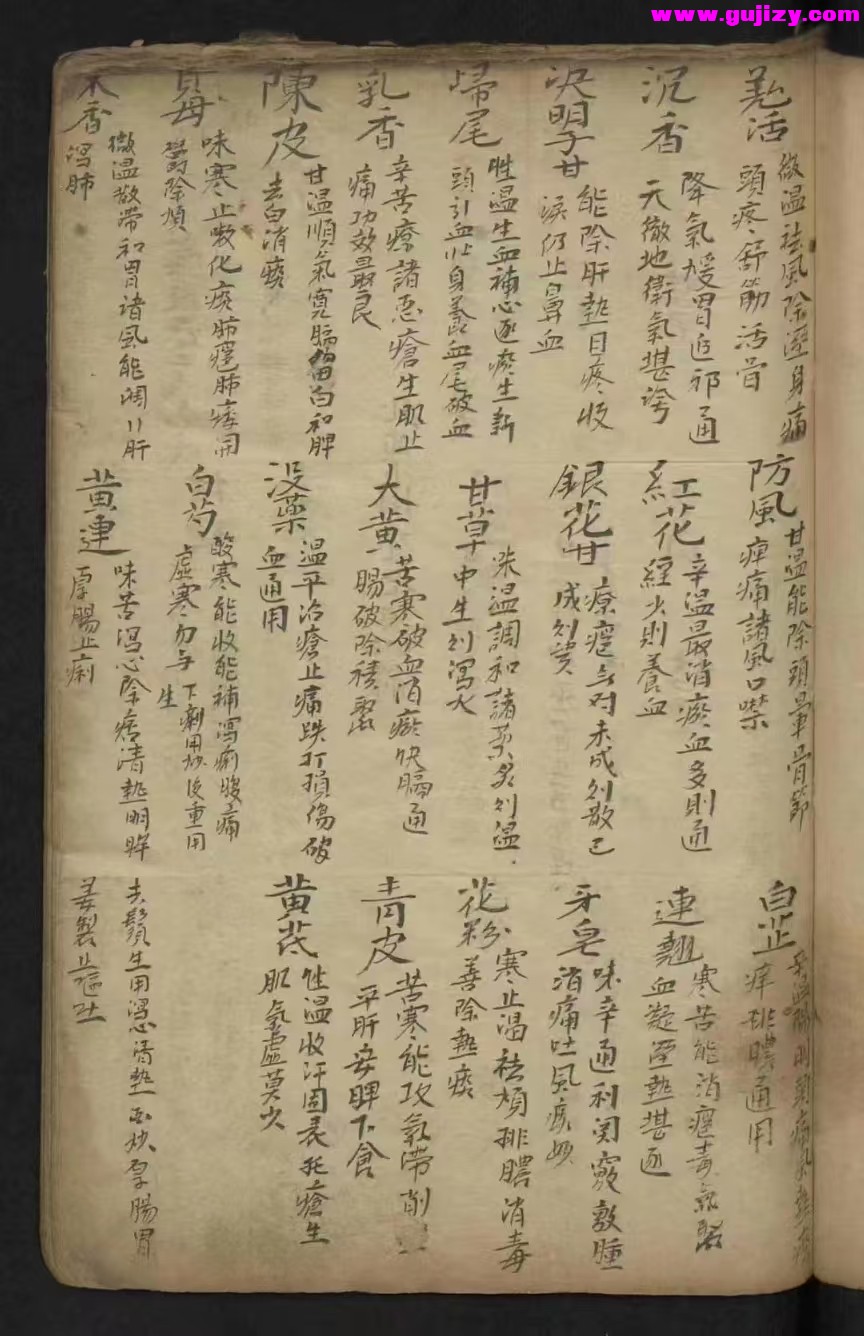 www.gujizy.com
羌活
微温祛風除濕身痛
頭疼舒筋活骨
防風
甘温能除頭暈骨節
痺痛諸風口噤
白芷
痒排膿通用
沉香
降氣煖胃追邪通
天徹地衛氣堪誇
紅花
辛温最消瘀血多則通
經少則養血
連翹
寒苦能消癰毒氣聚
血凝湿熱堪逐
决明子甘
能除肝熱目疼收
淚仍止鼻血
銀花甘
療癰無对未成则散已
成则潰
牙皂
味辛通利関竅敷腫
消痛吐風痰妙
歸尾
性温生血補心逐瘀生新
頭引血止身養血尾破血
甘草
温調和諸藥炙则温
中生则瀉火
花粉
寒止渴祛煩排膿消毒
善除熱痰
乳香
辛苦療諸恶瘡生肌止
痛功效最良
大黄
苦寒破血消瘀快膈通
腸破除積聚
青皮
苦寒能攻氣滯削
平肝安脾下食
陳皮
甘温順氣寛膈留白和脾
去白消痰
没藥
温平治瘡止痛跌打損傷破
血通用
黄芪
性温收汗固表托瘡生
肌氣虚莫少
貝母
味寒止嗽化痰肺癰肺痿開
鬱除煩
白芍
酸寒能收能補瀉痢腹痛
虚寒勿与 下痢用炒後重用
生
木香
微温散滯和胃諸風能調川肝
瀉肺
黄連
味苦瀉心除痞清熱明眸
厚腸止痢
去鬚生用瀉心清熱酒炒厚腸胃
姜製止嘔吐